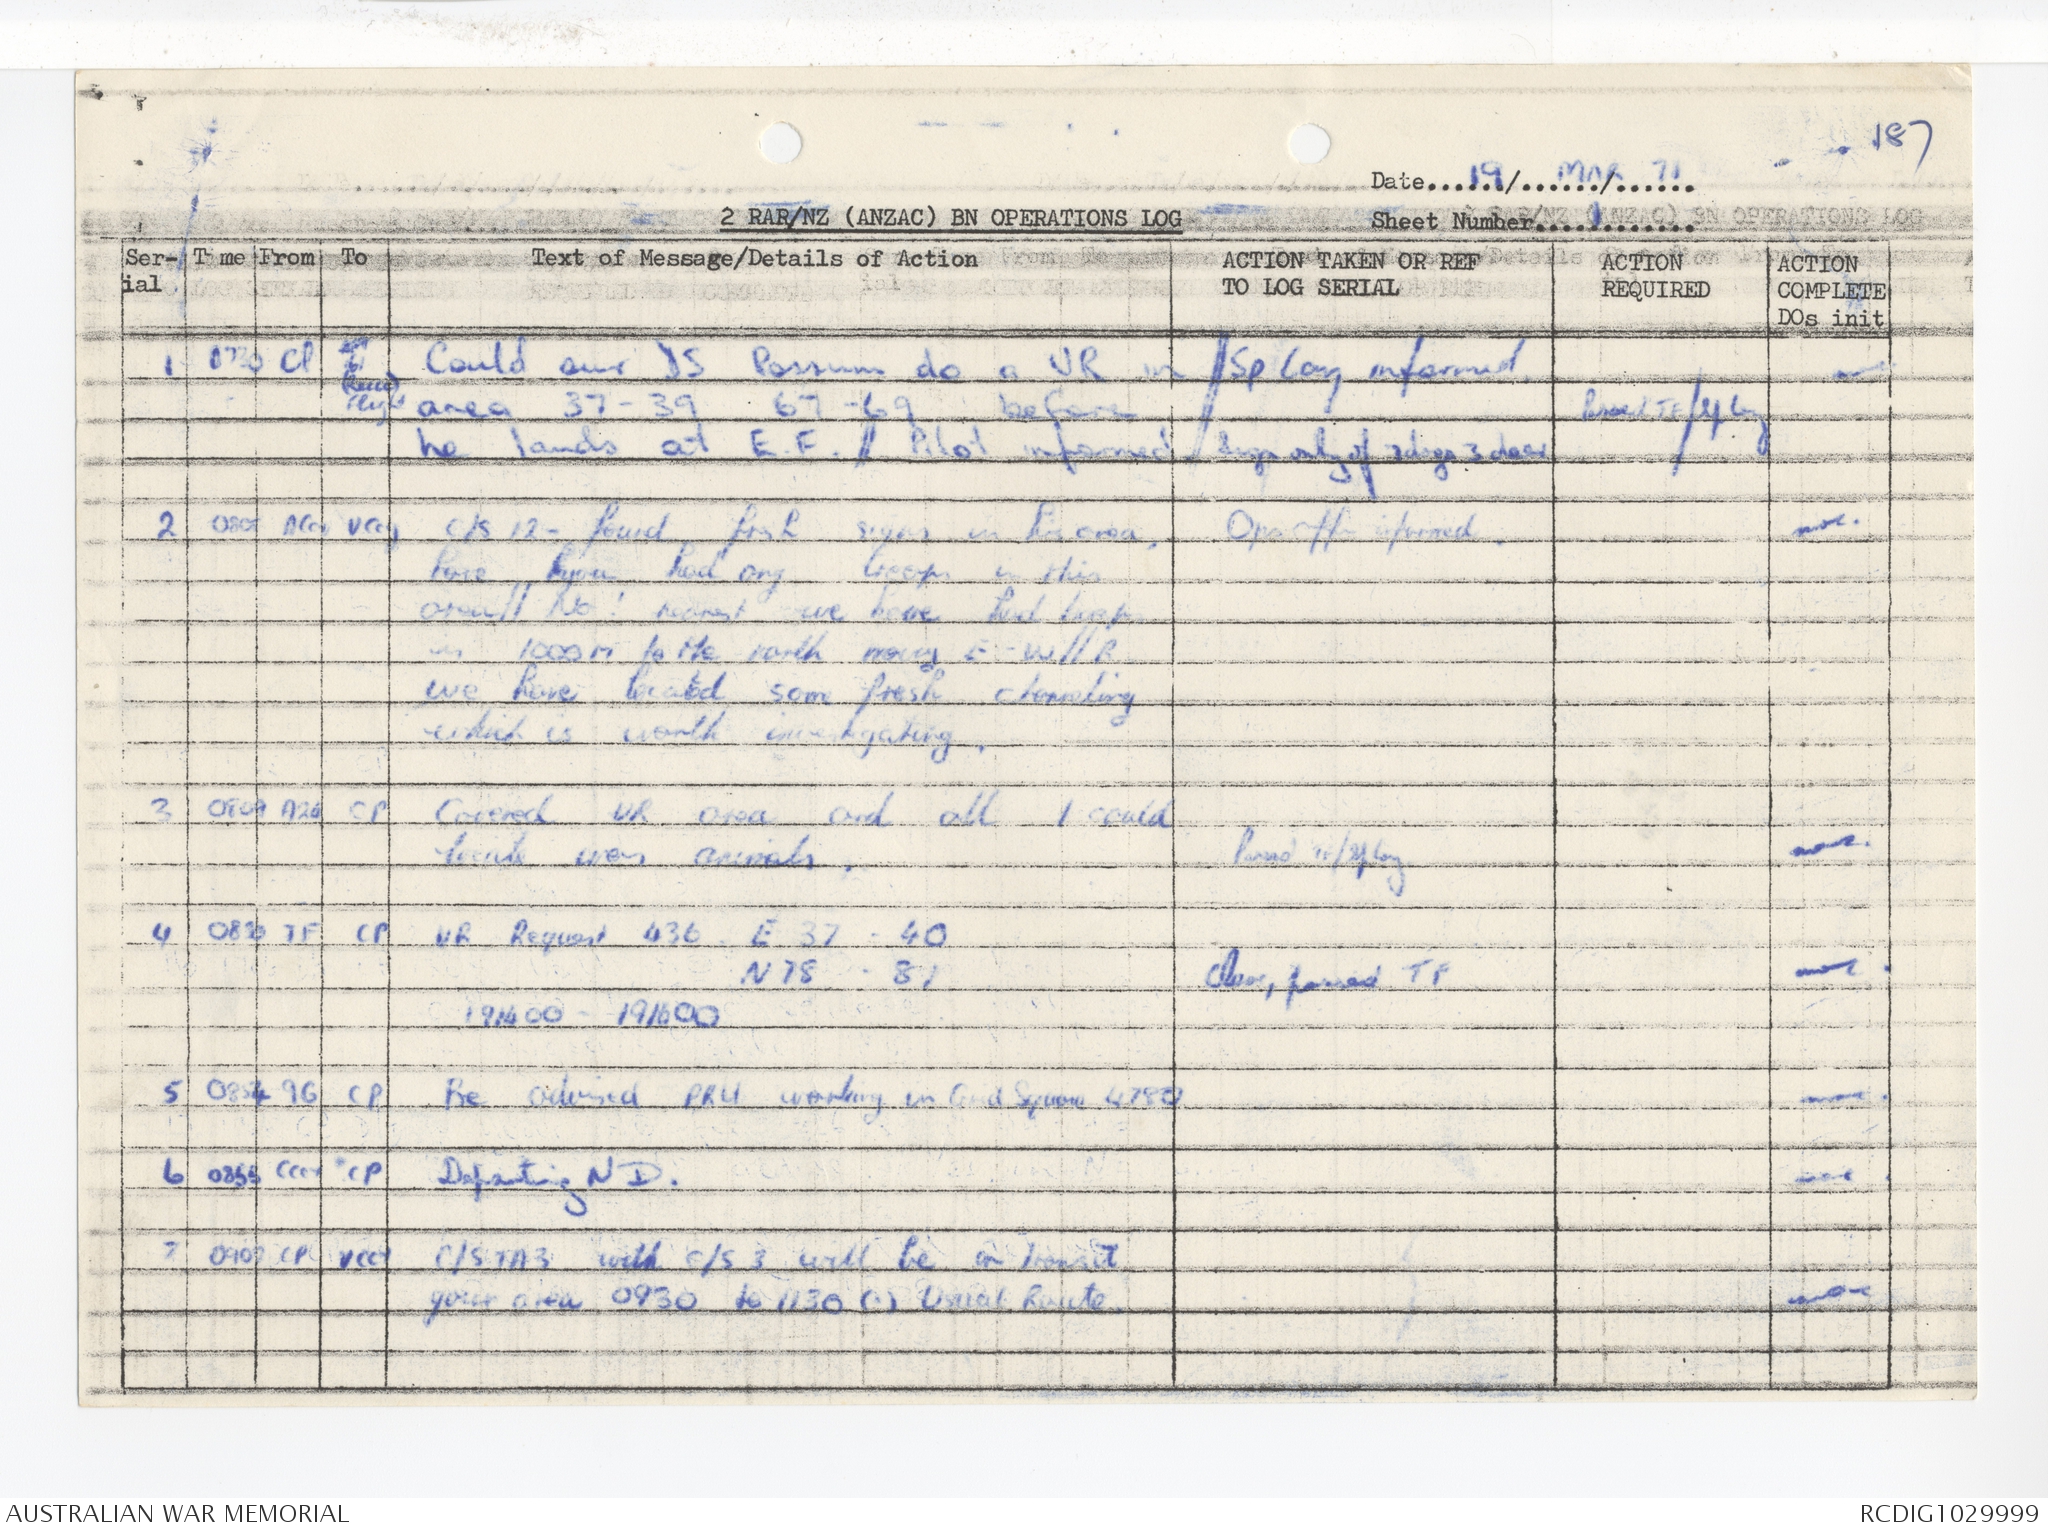 187
Date 19/ MAR 71
2 RAR/NZ (ANZAC) BN OPERATIONS LOG
Sheet Number 1
Ser- Time From To Text of Message/Details of Action ACTION TAKEN OR REF ACTION ACTION
ial TO LOG SERIAL REQUIRED COMPLETE
DOs init
1 0730 CP Could our Possum do a VR in // Sp Coy informed.
area 37-39 67-69 before
he lands at E.F. // Pilot informed
2 VCoy C/S 12- found fresh signs in his area. Ops offr informed.
have you had any troops in this
area // No! nearest we have had troops
is 1000m to the north moving E-W // R
we have located some fresh
which is worth investigating.
3 0809 CP Covered VR area and all I could
locate were animals. Passed TF/Sp Coy
4 TF CP VR Request 436. E 37 - 40
N 78 - 81 Clear, passed TF
191400 - 191600
5 0854 96 CP Be advised PRU working in Grid Square 4780
6 0855 CCoy CP Departing N D.
7 CP VCoy C/S TA3 with C/S 3 will be in transit
your area 0930 to 1130 (.) Usual Route.
AUSTRALIAN WAR MEMORIAL RCDIG1029999